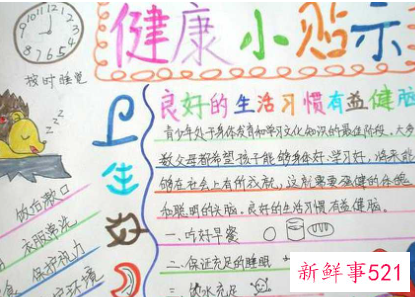 健康小贴示
按时睡觉
卫生
饭后漱口
衣服常洗
保护视力
护环境
良好的生活习惯有益健脑
青少年处于身体发育和学习文化知识的最佳阶段,大多
数父母都希望孩子能够身体好,学习好,将来能
够在社会上有所成就,这就需要强健的体魄
和聪明的头脑。良好的生活习惯有益健脑。
一.吃好早餐
二.保证充足的睡眠
三.饮水充足
新鲜事521